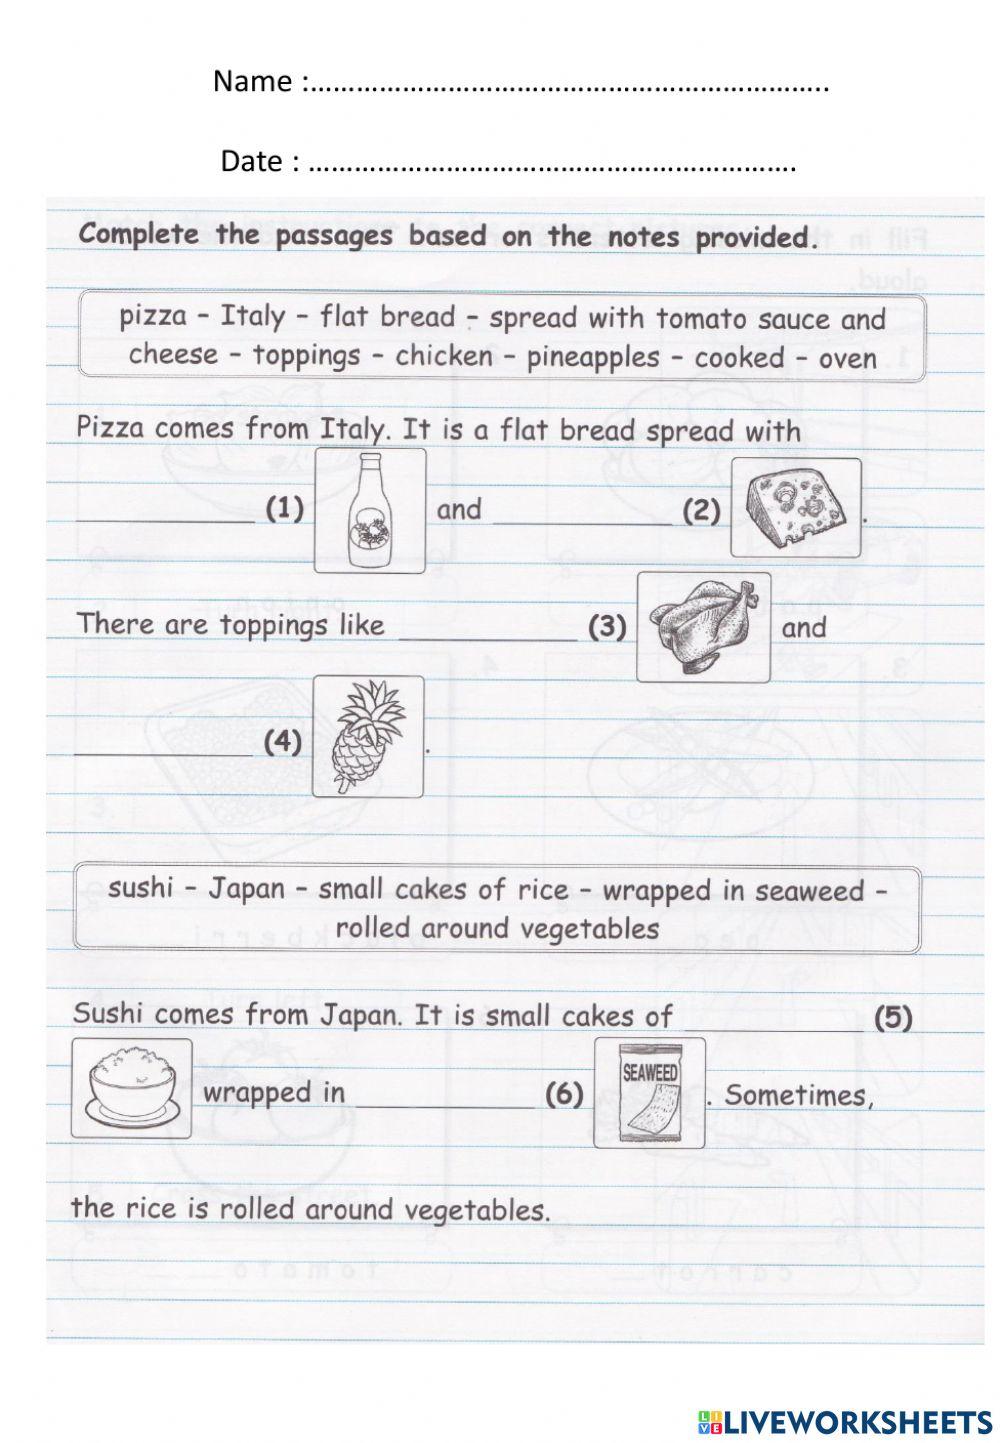 Name :..............................................................
Date : ..............................................................
Complete the passages based on the notes provided.
pizza – Italy – flat bread – spread with tomato sauce and
cheese – toppings – chicken – pineapples – cooked – oven
Pizza comes from Italy. It is a flat bread spread with
____________ (1) and ____________ (2) .
There are toppings like ____________ (3) and
____________ (4) .
sushi – Japan – small cakes of rice – wrapped in seaweed –
rolled around vegetables
Sushi comes from Japan. It is small cakes of ____________ (5)
wrapped in ____________ (6) SEAWEED . Sometimes,
the rice is rolled around vegetables.
LIVE LIVEWORKSHEETS